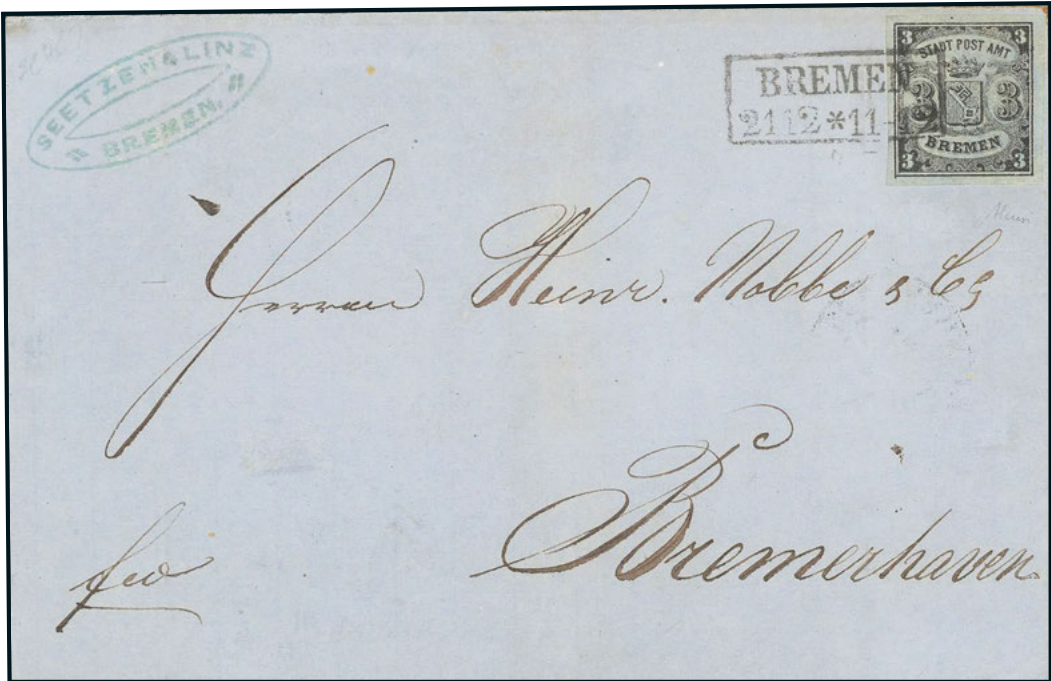 SEETZEN & LINZ
BREMEN.
BREMEN
21 12 * 11-
3 3
STADT POST AMT
3 3
BREMEN
3 3
Herren Heinr. Nobbe & Co
Bremerhaven
fco